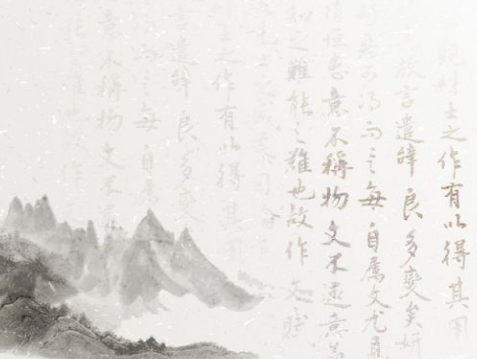 觀材士之作有以得其用
放言遣辭良多變矣妍
惡可得而言之每自屬文尤見
情恒患意不稱物文不逮意
知之難能之難也故作文賦
士之作有以得其用
言遣辭良多變
而言之每自屬
意不稱物文不